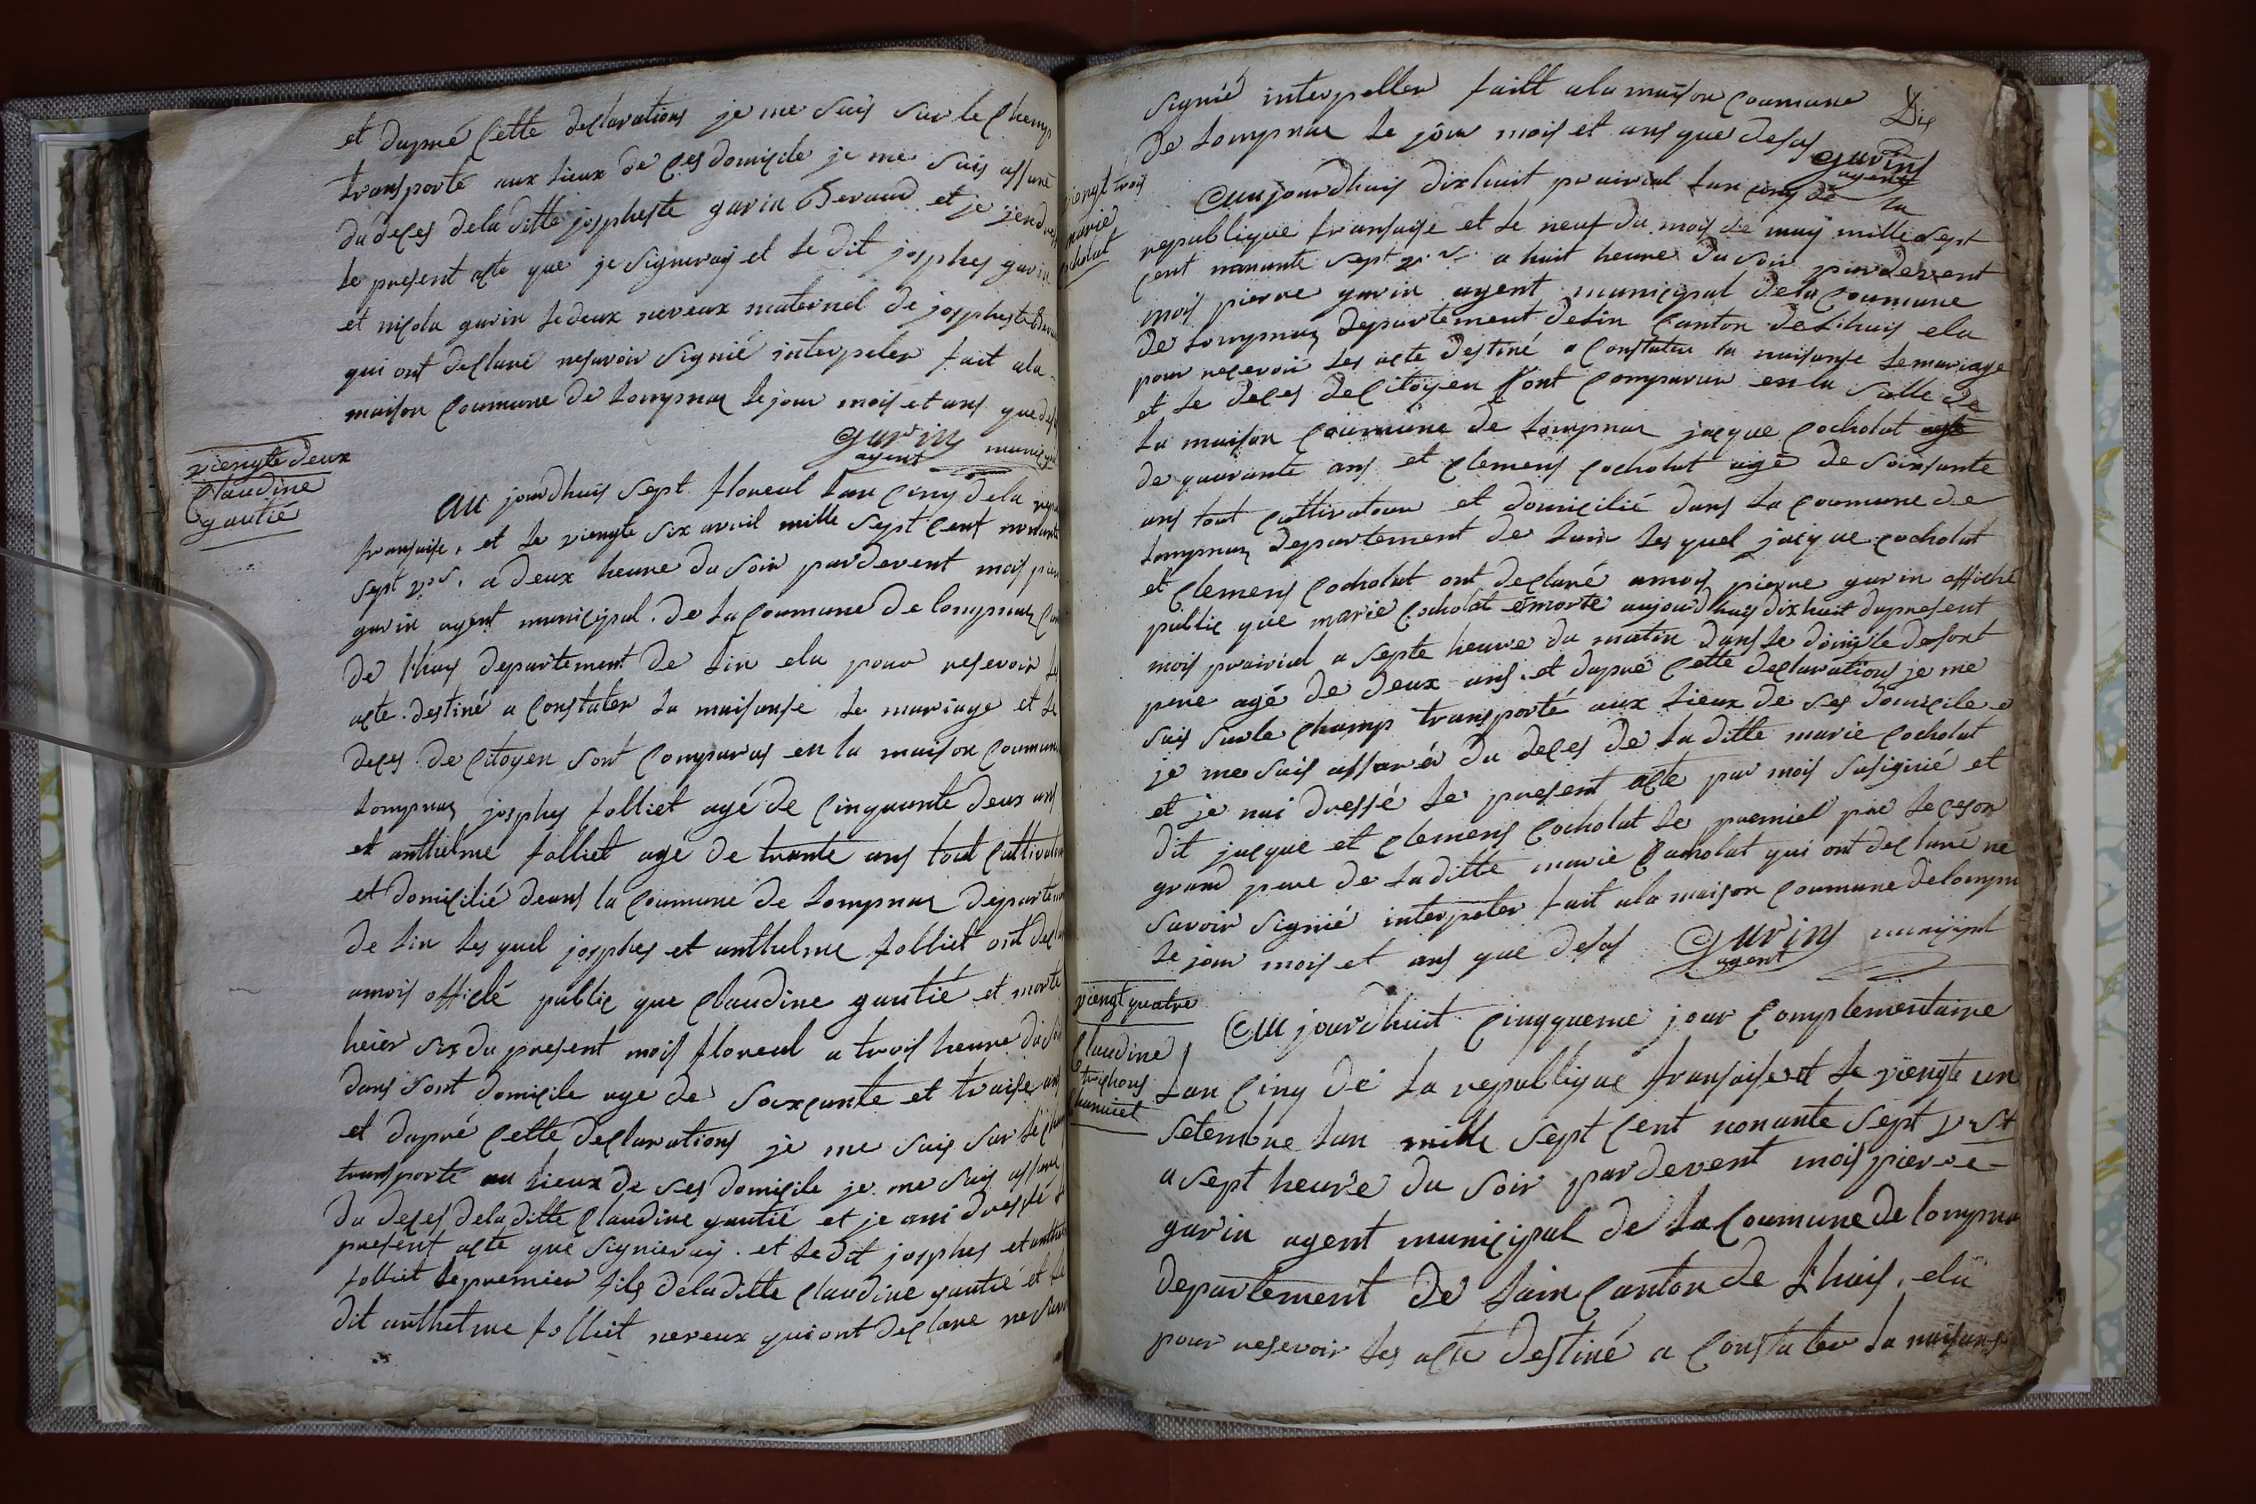 et dapné cette declarations je me suis sur le champ
transporté aux lieux de ces domicile je me suis assuré
du deces de la ditte jospheste gavin Beraud et je
le present acte que je signeray et le dit josphes gavin
et nicola gavin le deux neveux maternel de jospheste
qui ont declaré ne savoir signié interpeler fait a la
maison coumune de Lompnaz le jour mois et ans que
gavin
agent
viengte deux
Claudine
gautié
Au jourdhuis sept floreal lan cinq de la
fransaise, et le viengte six avril mille sept cent nonante
sept v.s. a deux heure du soir pardevent mois
gavin agent municipal de la coumune de lompnaz
de Lhuis departement de Lin elu pour resevoir
acte destiné a constater la naisanse le mariage et le
deces de citoyen sont comparus en la maison coumune
Lompnaz josphes folliet agé de cinquante deux ans
et anthelme folliet agé de trante ans tout
et domicilié deans la coumune de Lompnaz
de Lin les quel josphes et anthelme folliet ont
amois officié public que Claudine gautié et morte
heier six du present mois floreal a trois heure du
dans sont domicile age de soixcante et traise ans
et dapné cette declarations je me suis sur le
transporté au lieux de ses domicile je me suis assuré
du deces de la ditte Claudine gautié et je ani dressé le
present acte que signieray et le dit josphes et
folliet le premier fils de la ditte Claudine gautié et le
dit anthelme folliet neveux qui ont declaré ne
signié interpeller faitt a la maison coumune
de Lompnaz le jour mois et ans que desus
gavin
agent
viengt trois
marie
cocholat
Aujourdhuis dixhuit prairial lan cinq de la
republique fransaise et le neuf du mois de may mille sept
cent nonante sept a huit heure du soir pardevent
mois pierre gavin agent municipal de la coumune
de Lompnaz departement de Lin canton de Lhuis elu
pour recevoir les acte destiné a constater la naisanse le mariage
et le deces de citoyen sont comparux en la salle de
la maison coumune de Lompnaz jacque cocholat
de quarante ans et clemens cocholat agé de soixsante
ans tout cultivateur et domicilié dans la coumune de
Lompnaz departement de Lain les quel jacque cocholat
et clemens cocholat ont declaré amois pierre gavin officié
public que marie cocholat émorte aujourdhuis dix huit du present
mois prairial a septe heure du matin dans le domicile de sont
pere agé de deux ans et dapné cette declarations je me
suis sur le champ transporté aux lieux de ses domicile e
je me suis assuré du deces de la ditte marie cocholat
et je nai dressé le present acte par mois susignié et
dit jacque et clemens cocholat le premiel pre le ceson
grand pere de la ditte marie cocholat qui ont declaré ne
savoir signié interpeter fait a la maison coumune de lompn
le jour mois et ans que desus gavin municipal
agent
viengt quatre
Claudine
Au jourdhuit cinqqueme jour complementaire
lan cinq de la republique fransaise et le viengte un
setembre lan mille sept cent nonante sept v st
a sept heure du soir pardevent mois pierre
gavin agent municipal de la coumune de lompna
departement de Lain canton de Lhuis, elu
pour resevoir les acte destiné a constater la naisanse